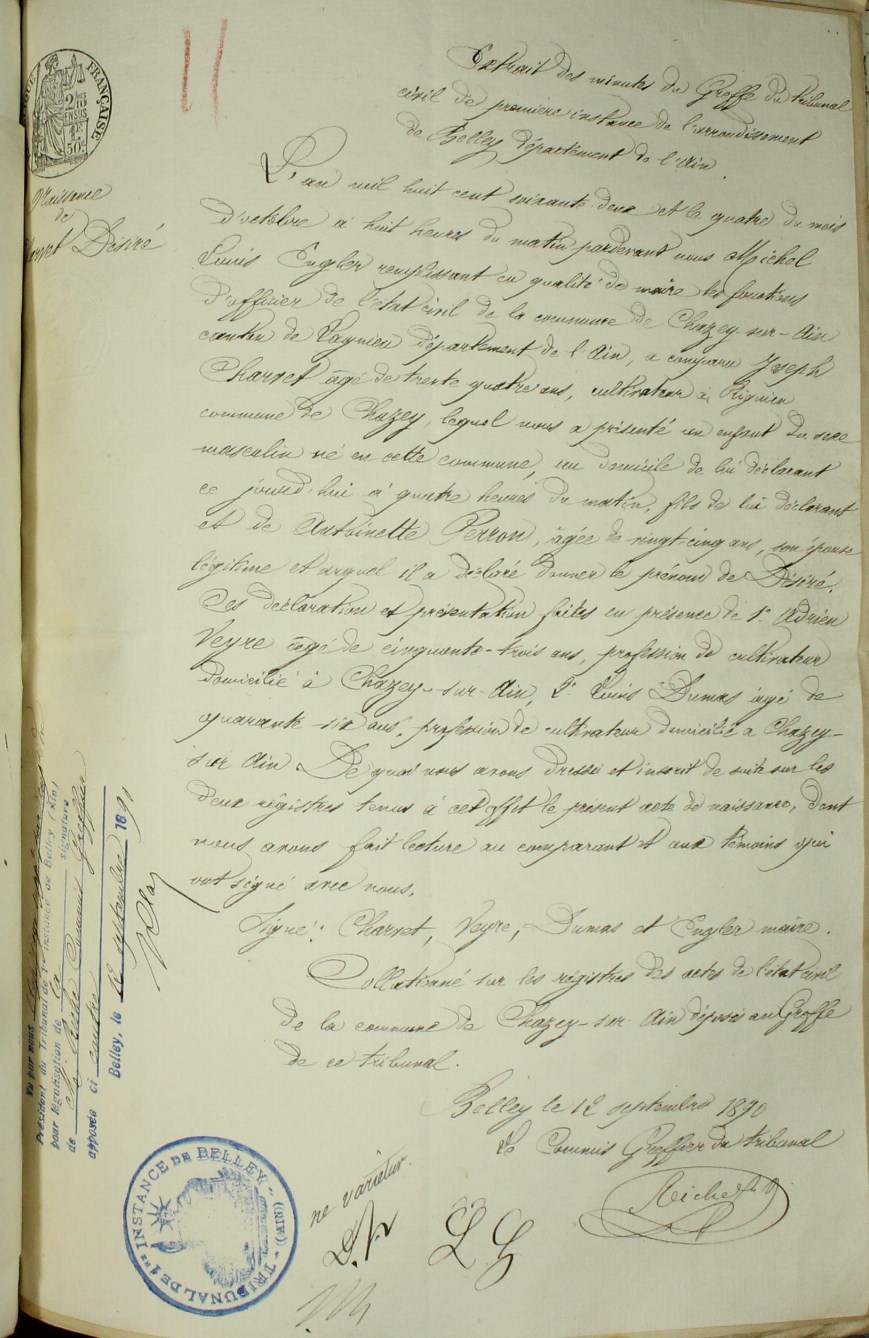 11
FRANÇAISE
2/10
EN SUS
1F
50c
Naissance
de
Charvet Désiré
Extrait des minutes du Greffe du tribunal
civil de première instance de l'arrondissement
de Belley département de l'Ain.
L'an mil huit cent soixante deux et le quatre du mois
d'octobre à huit heures du matin pardevant nous Michel
Louis Engler remplissant en qualité de maire les fonctions
d'officier de l'état civil de la commune de Chazey-sur-Ain
canton de Lagnieu département de l'Ain, a comparu Joseph
Charvet âgé de trente quatre ans, cultivateur à Rignieu
commune de Chazey, lequel nous a présenté un enfant du sexe
masculin né en cette commune, au domicile de lui déclarant
ce jourd'hui à quatre heures du matin, fils de lui déclarant
et de Antoinette Perron, âgée de vingt-cinq ans, son épouse
légitime et auquel il a déclaré donner le prénom de Désiré.
Ces déclaration et présentation faites en présence de 1° Adrien
Veyre âgé de cinquante-trois ans, profession de cultivateur
domicilié à Chazey-sur-Ain, 2° Louis Dumas âgé de
quarante-six ans, profession de cultivateur domicilié à Chazey-
sur Ain. De quoi nous avons dressé et inscrit de suite sur les
deux régistres tenus à cet effet le présent acte de naissance, dont
nous avons fait lecture au comparant et aux témoins qui
ont signé avec nous.
Signé: Charvet, Veyre, Dumas et Engler maire.
Collationné sur les régistres des actes de l'état civil
de la commune de Chazey-sur-Ain déposés au Greffe
de ce tribunal.
Belley le 12 septembre 1890
Le Commis Greffier du tribunal
Vu par nous
Président du Tribunal de 1re instance de Belley (Ain)
pour légalisation de la signature
de Commis Greffier
apposée ci contre
Belley, le 12 septembre 18
TRIBUNAL DE 1ère INSTANCE DE BELLEY (AIN)
ne varietur.
L.G